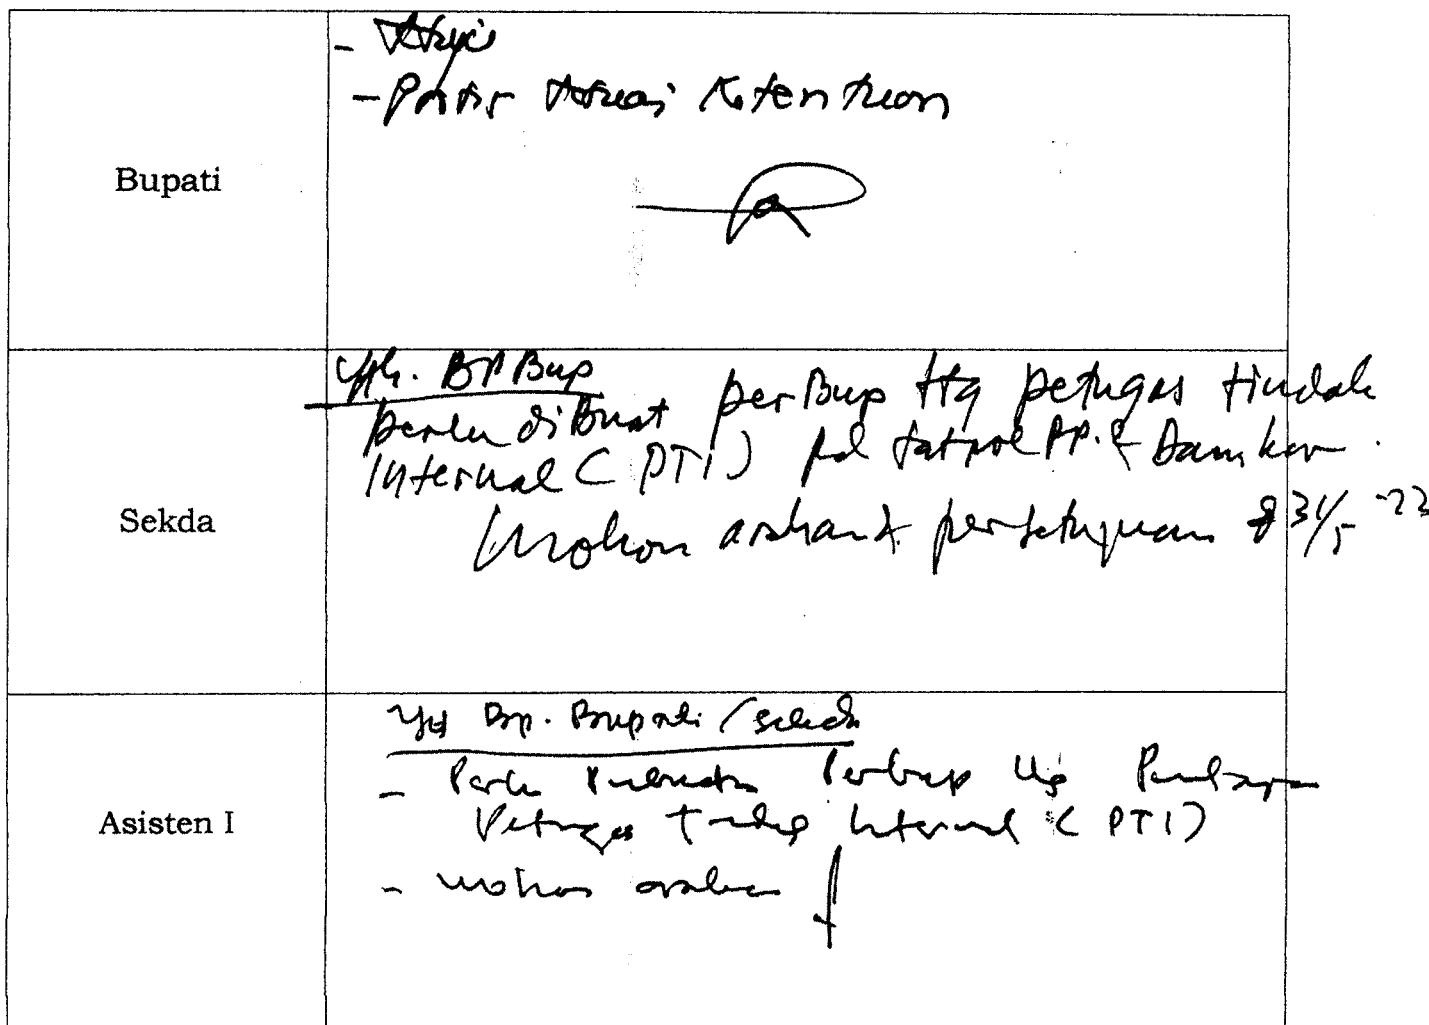 Bupati
- Proses sesuai Ketentuan
Sekda
Yth. BP Bup
perlu diBuat perBup ttg petugas tindak
Internal (PTI) pd Satpol PP. & Damkar.
Mohon arahan & persetujuan 31/5-23
Asisten I
Yth Bp. Bupati / Sekda
- Perlu Perbup ttg
Petugas Tindak Internal (PTI)
- mohon arahan